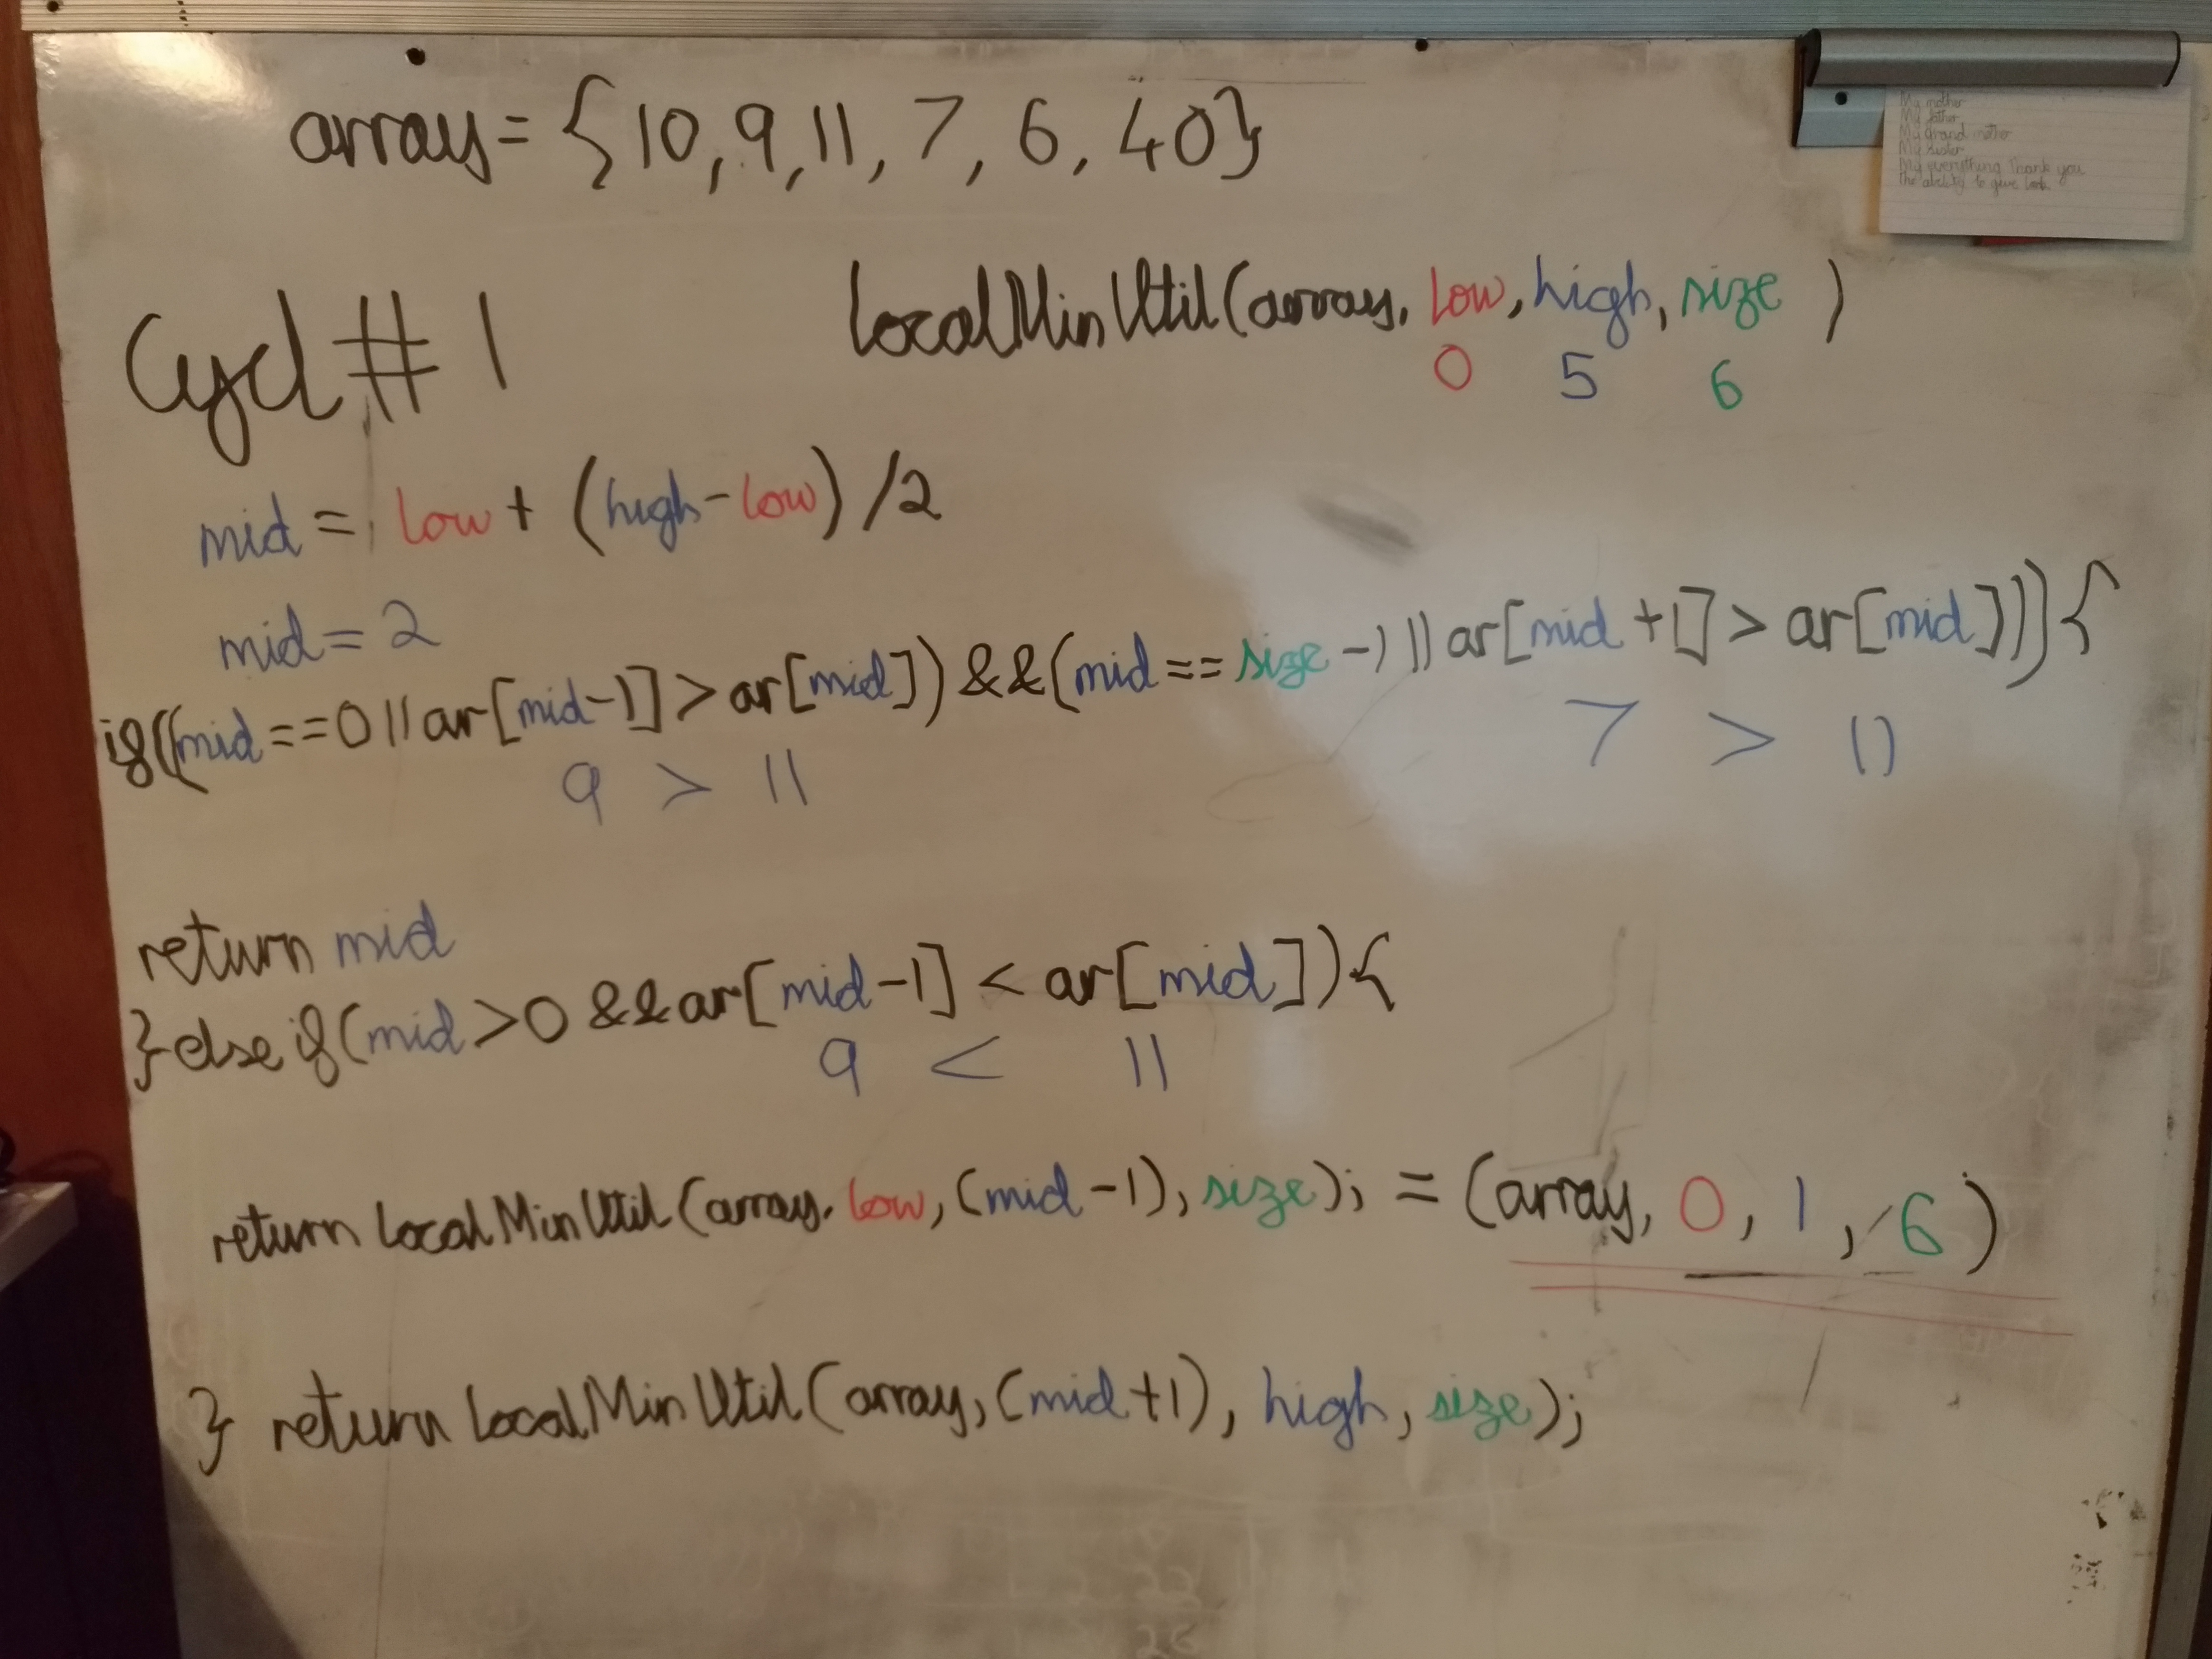 array = {10, 9, 11, 7, 6, 40}
My mother
My father
My grand mother
My sister
My everything Thank you
the ability to give
Cycl # 1
LocalMinUtil(array, low, high, size )
0 5 6
mid = low + (high - low) /2
mid = 2
if((mid == 0 || ar[mid-1] > ar[mid]) && (mid == size -1 || ar[mid +1] > ar[mid])){
9 > 11
7 > 11
return mid
} else if(mid > 0 && ar[mid-1] < ar[mid]){
9 < 11
return LocalMinUtil(array, low, (mid -1), size); = (array, 0, 1, 6)
} return LocalMinUtil(array, (mid+1), high, size);